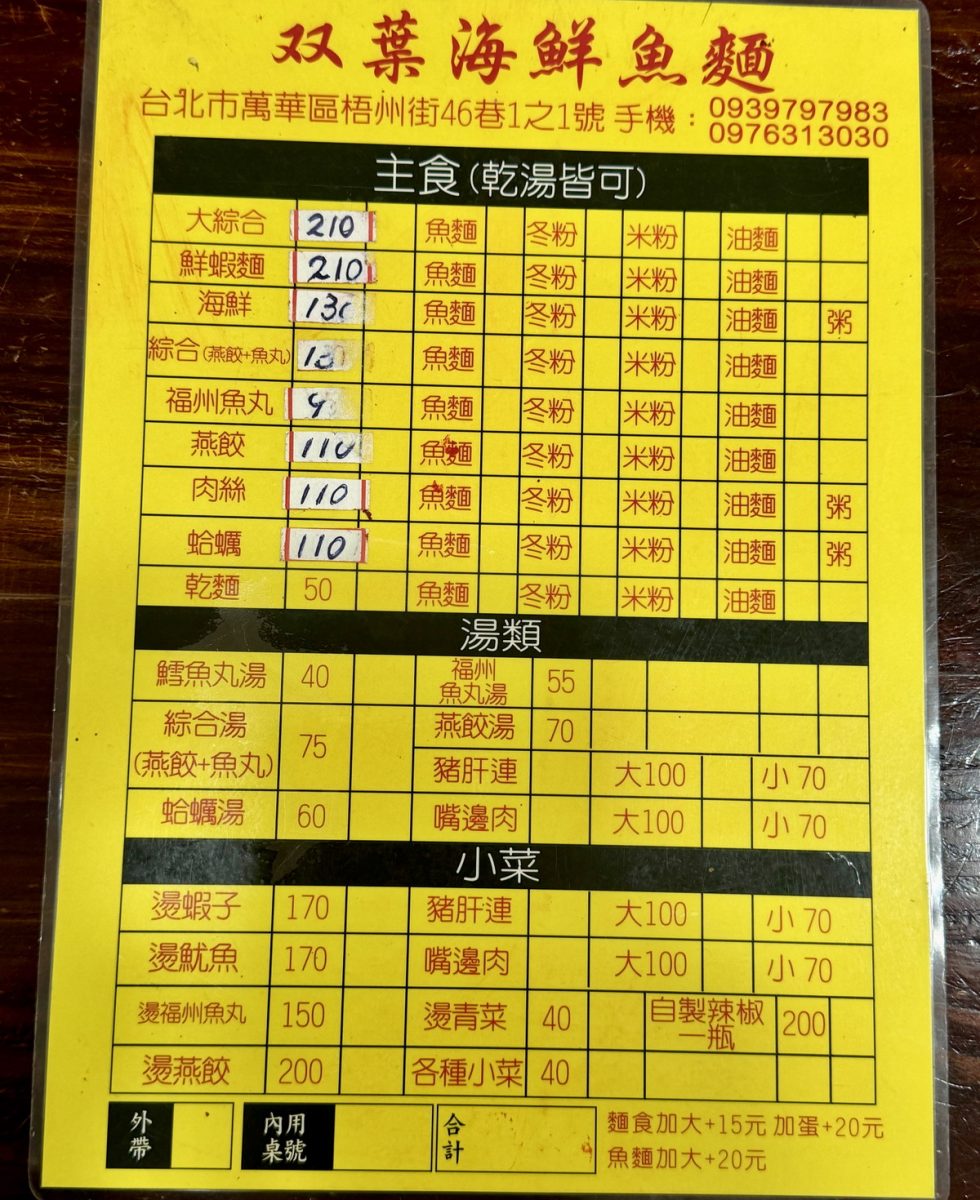 双葉海鮮魚麵
台北市萬華區梧州街46巷1之1號 手機：0939797983
0976313030
主食(乾湯皆可)
大綜合 210 魚麵 冬粉 米粉 油麵
鮮蝦麵 210 魚麵 冬粉 米粉 油麵
海鮮 魚麵 冬粉 米粉 油麵 粥
綜合(燕餃+魚丸) 魚麵 冬粉 米粉 油麵
福州魚丸 魚麵 冬粉 米粉 油麵
燕餃 110 魚麵 冬粉 米粉 油麵
肉絲 110 魚麵 冬粉 米粉 油麵 粥
蛤蠣 110 魚麵 冬粉 米粉 油麵 粥
乾麵 50 魚麵 冬粉 米粉 油麵
湯類
鱈魚丸湯 40 福州魚丸湯 55
綜合湯(燕餃+魚丸) 75 燕餃湯 70
豬肝連 大100 小70
蛤蠣湯 60 嘴邊肉 大100 小70
小菜
燙蝦子 170 豬肝連 大100 小70
燙魷魚 170 嘴邊肉 大100 小70
燙福州魚丸 150 燙青菜 40 自製辣椒一瓶 200
燙燕餃 200 各種小菜 40
外帶 內用桌號 合計 麵食加大+15元 加蛋+20元
魚麵加大+20元